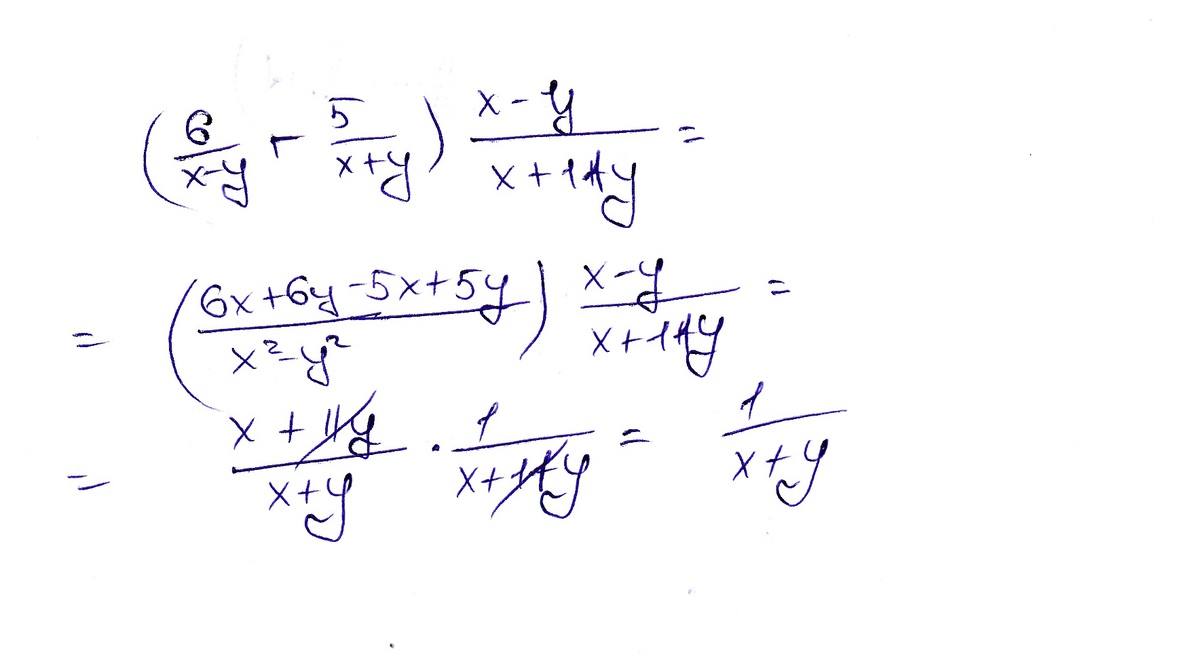 (6/(x-y) - 5/(x+y)) (x-y)/(x+11y) =
= ((6x+6y-5x+5y)/(x²-y²)) (x-y)/(x+11y) =
= (x+11y)/(x+y) · 1/(x+11y) = 1/(x+y)